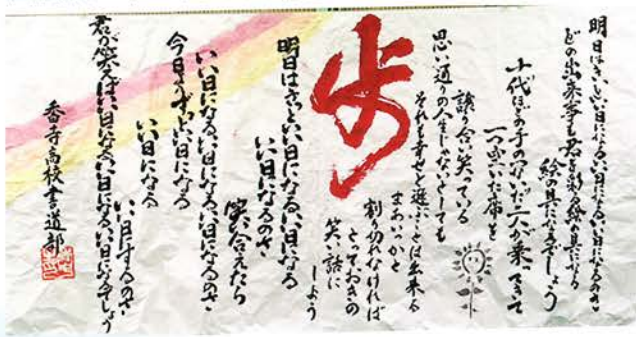 明日はきっといい日になるいい日になるいい日になるのさ
どの出来事も君を彩る絵の具になる
絵の具になるでしょう
十代ほどの手のつないだ二人が乗ってきて
一つ空いた席を
譲り合い笑っている
思い通りの人生じゃないとしても
それも幸せと選ぶことは出来る
まあいいかと
割り切れなければ
とっておきの
笑い話に
しよう
歩
明日はきっといい日になるいい日になる
いい日になるのさ
笑い合えたら
いい日になるいい日になるいい日になるのさ
今日よりずっといい日になる
いい日になる
いい日にするのさ
君が笑えばいい日になるいい日になるいい日になるでしょう
香寺高校書道部